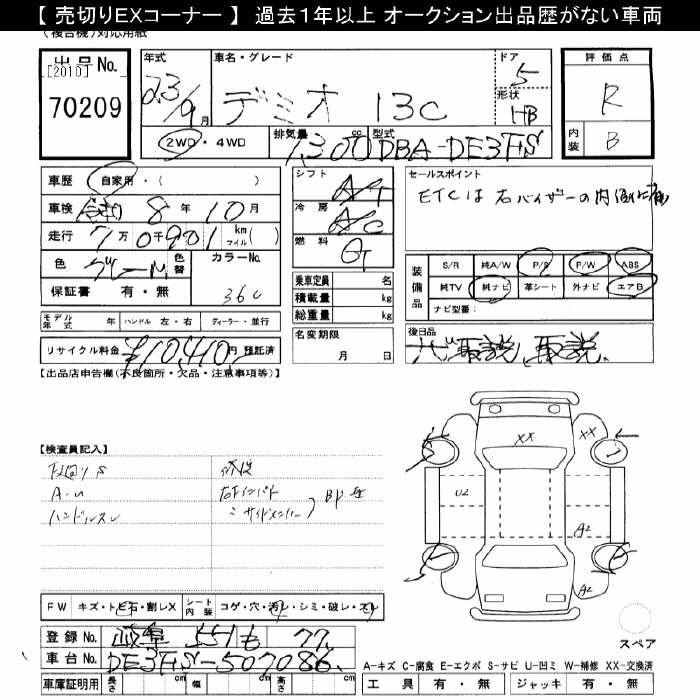 【 売切りEXコーナー 】 過去1年以上 オークション出品歴がない車両
(複合機)対応用紙
出品No. [2010] 70209
年式 23/9月
車名・グレード デミオ 13C
ドア 5
形状 HB
2WD・4WD
排気量 1300cc
型式 DBA-DE3FS
評価点 R
内装 B
車歴 自家用・( )
車検 令和 8年 10月
走行 7万0千901 km マイル( )
色 グレーM 色替
カラーNo. 36C
保証書 有・無
シフト AT
冷房 AC
燃料 G
乗車定員 名
積載量 kg
総重量 kg
名変期限 月 日
セールスポイント
ETCは右バイザーの内側に
装備品 S/R 純A/W P/S P/W ABS
純TV 純ナビ 革シート 外ナビ エアB
ナビ型番:
モデル年式 年 ハンドル 左・右 ディーラー・並行
リサイクル料金 ¥10,410円 預託済
後日品
ナビ取説 取説
【出品店申告欄(不良箇所・欠品・注意事項等)】
【検査員記入】
下回りS
A-u
ハンドルスレ
修復
右インパネ
サイドメンバー
XX
XX
U2
A2
A2
FW キズ・トビ石・割レX
シート内装 コゲ・穴・汚レ・シミ・破レ・スレ
スペア
登録No. 岐阜 551 も 77
車台No. DE3FS-507086
車庫証明用 長さ cm 幅 cm 高さ cm
A-キズ C-腐食 E-エクボ S-サビ U-凹ミ W-補修 XX-交換済
工具 有・無 ジャッキ 有・無